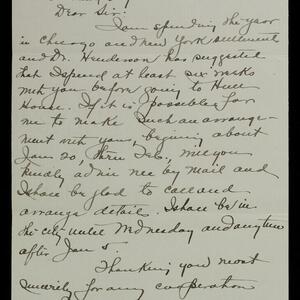 Dear Sir:
I am spending the year
in Chicago and New York settlement
and Dr. Henderson has suggested
that I spend at least six weeks
with you before going to Hull
House. If it is possible for
me to make such an arrange-
ment with you, beginning about
Jan 20, thru Feb., will you
kindly advise me by mail and
I shall be glad to call and
arrange details. I shall be in
the city until Wednesday and anytime
after Jan 5.
Thanking you most
sincerely for any cooperation